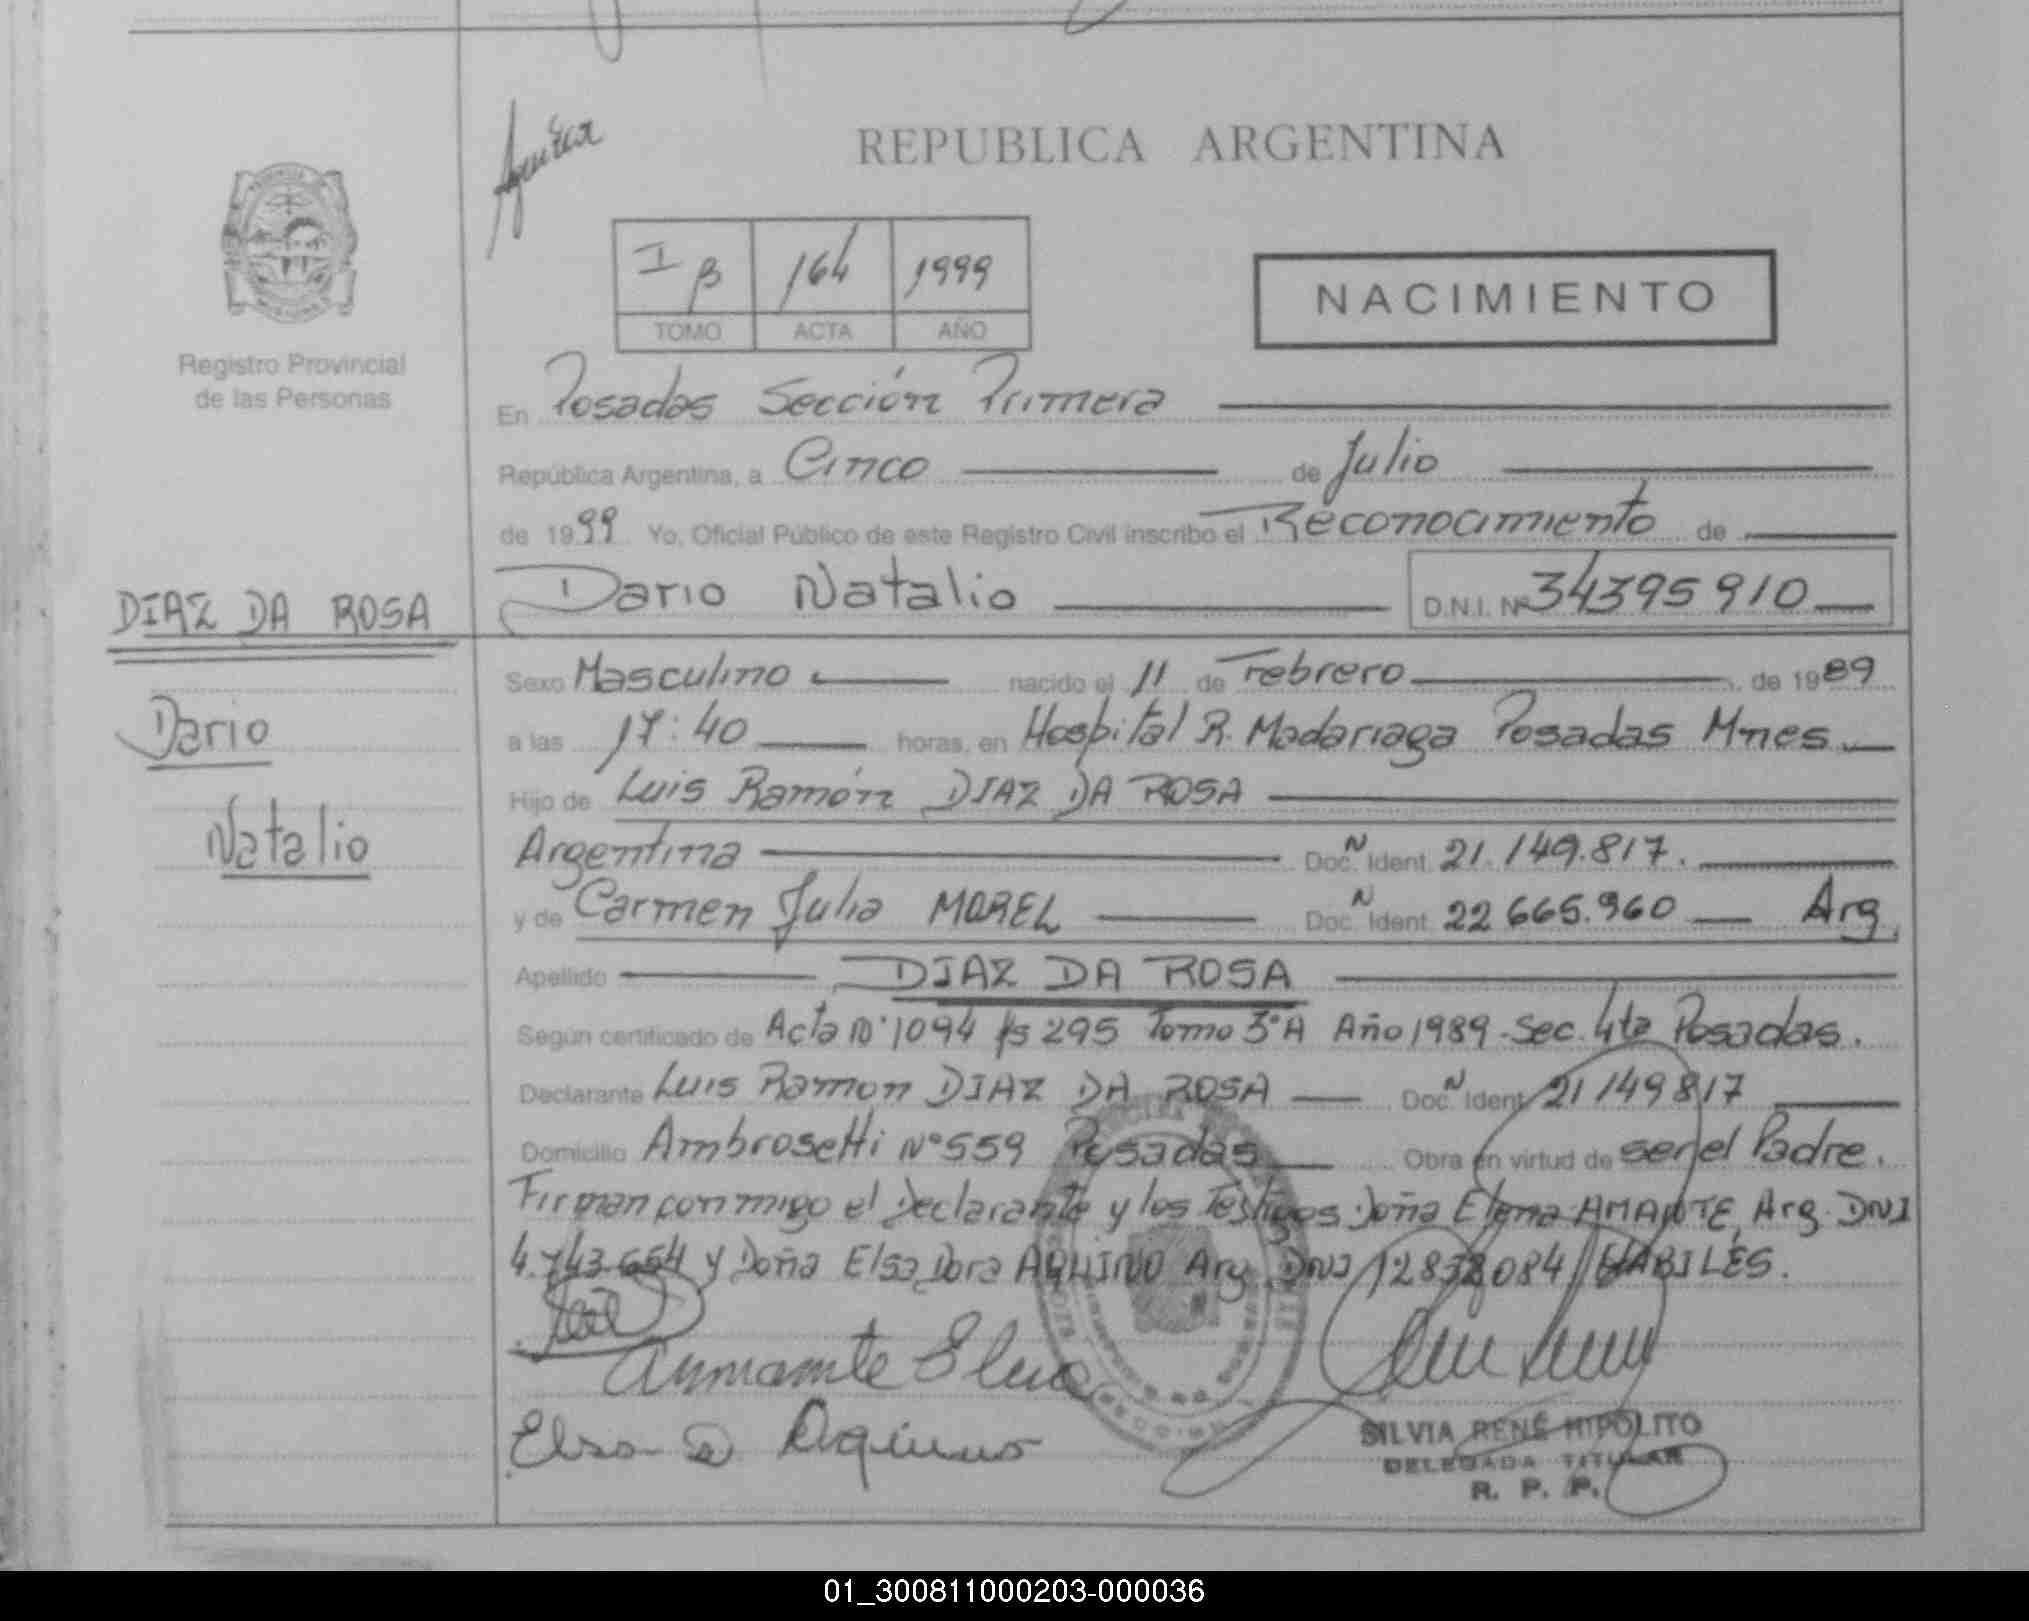 REPUBLICA ARGENTINA
I B 164 1999
TOMO ACTA AÑO
NACIMIENTO
Registro Provincial
de las Personas
En Posadas Sección Primera
República Argentina, a Cinco de Julio
de 1999 Yo, Oficial Público de este Registro Civil inscribo el Reconocimiento de
Dario Natalio D.N.I. Nº 34395910
DIAZ DA ROSA
Dario
Natalio
Sexo Masculino nacido el 11 de Febrero de 1989
a las 17:40 horas, en Hospital R. Madariaga Posadas Mnes
Hijo de Luis Ramón DIAZ DA ROSA
Argentina Doc. N Ident. 21.149.817.
y de Carmen Julia MOREL Doc. N Ident. 22 665.960 Arg.
Apellido DIAZ DA ROSA
Según certificado de Acta Nº 1094 fs 295 Tomo 3º A Año 1989 - Sec. 4ta Posadas.
Declarante Luis Ramon DIAZ DA ROSA Doc. N Ident. 21149817
Domicilio Ambrosetti Nº 559 Posadas Obra en virtud de ser el Padre.
Firman conmigo el Declarante y los Testigos: Doña Elena AMANTE, Arg. DNI
4.743.654 y Doña Elsa Dora AQUINO Arg DNI 12838084 HABILES.
Elsa D Aquino
SILVIA RENÉ HIPOLITO
DELEGADA TITULAR
R. P. P.
01_300811000203-000036